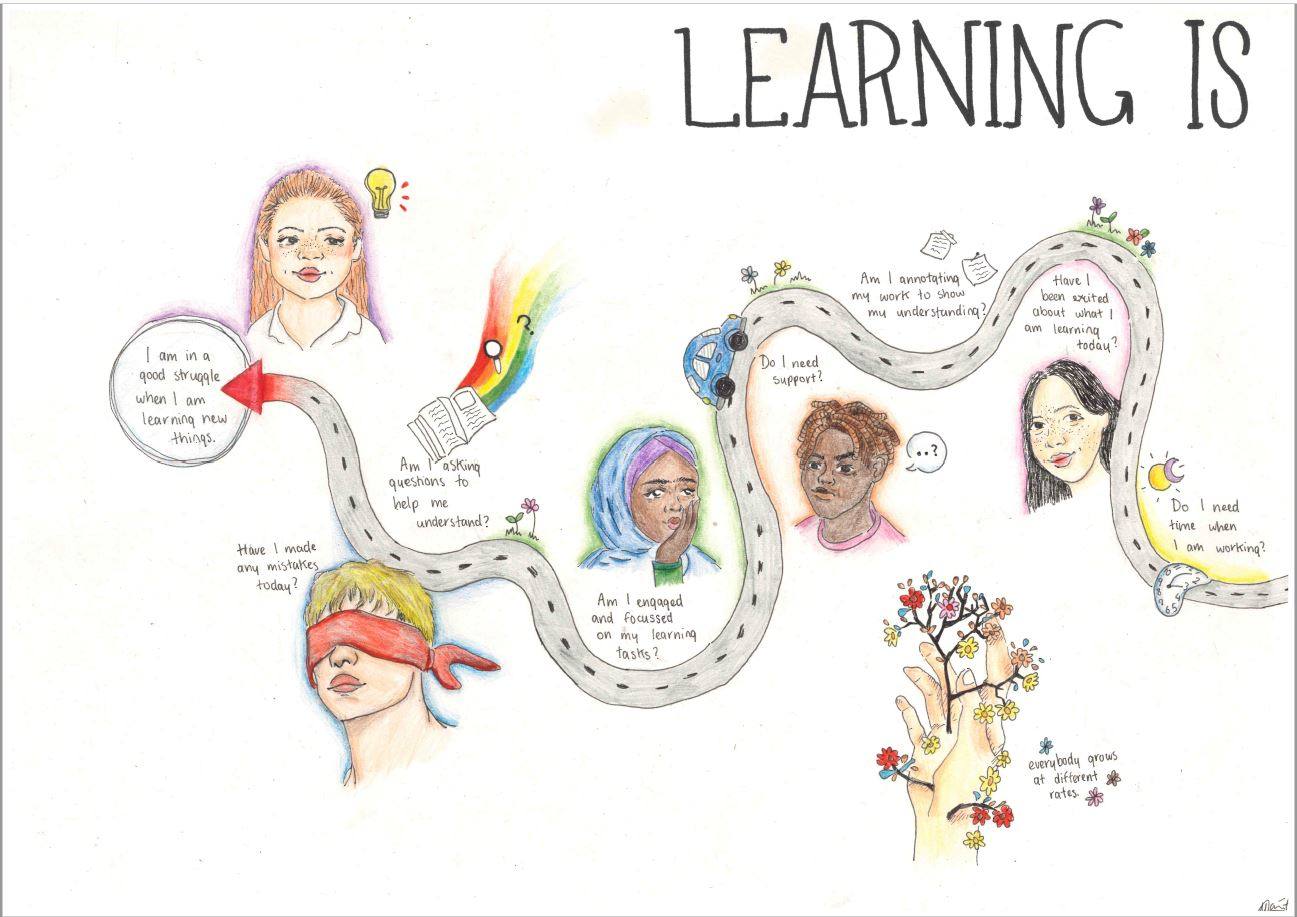 LEARNING IS
I am in a
good struggle
when I am
learning new
things.
?
Am I asking
questions to
help me
understand?
Have I made
any mistakes
today?
Am I engaged
and focussed
on my learning
tasks?
Do I need
support?
..?
Am I annotating
my work to show
my understanding?
Have I
been exited
about what I
am learning
today?
Do I need
time when
I am working?
everybody grows
at different
rates.